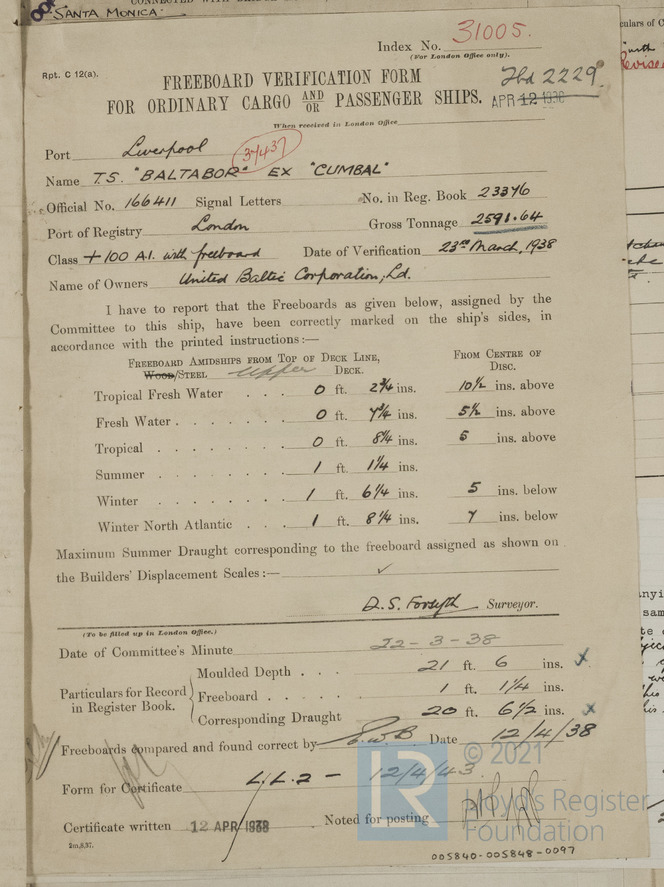 CONNECTED WITH
"SANTA MONICA"
Index No. 31005.
(For London Office only).
Rpt. C 12(a).
FREEBOARD VERIFICATION FORM
FOR ORDINARY CARGO AND/OR PASSENGER SHIPS.
Fbd 2229
APR 12 1938
When received in London Office
Port Liverpool
37437
Name T.S. "BALTABOR" EX "CUMBAL"
Official No. 166411 Signal Letters No. in Reg. Book 23376
Port of Registry London Gross Tonnage 2591.64
Class + 100 A.1. with freeboard Date of Verification 23rd March, 1938
Name of Owners United Baltic Corporation, Ld.
I have to report that the Freeboards as given below, assigned by the
Committee to this ship, have been correctly marked on the ship's sides, in
accordance with the printed instructions :—
Freeboard Amidships from Top of Deck Line, From Centre of
Wood/Steel Upper Deck. Disc.
Tropical Fresh Water . . . 0 ft. 2¾ ins. 10½ ins. above
Fresh Water . . . . . . 0 ft. 7¾ ins. 5½ ins. above
Tropical . . . . . . . 0 ft. 8¼ ins. 5 ins. above
Summer . . . . . . . 1 ft. 1¼ ins.
Winter . . . . . . . 1 ft. 6¼ ins. 5 ins. below
Winter North Atlantic . . . 1 ft. 8¼ ins. 7 ins. below
Maximum Summer Draught corresponding to the freeboard assigned as shown on
the Builders' Displacement Scales :— ✓
D.S. Forsyth Surveyor.
(To be filled up in London Office.)
Date of Committee's Minute 22-3-38
Particulars for Record in Register Book.
Moulded Depth . . . . 21 ft. 6 ins.
Freeboard . . . . . 1 ft. 1¼ ins.
Corresponding Draught 20 ft. 6½ ins.
Freeboards compared and found correct by Date 12/4/38
Form for Certificate L.L.2 - 12/4/43.
Certificate written 12 APR 1938 Noted for posting
2m,6,37.
© 2021
LR
Lloyd's Register
Foundation
005840-005848-0097